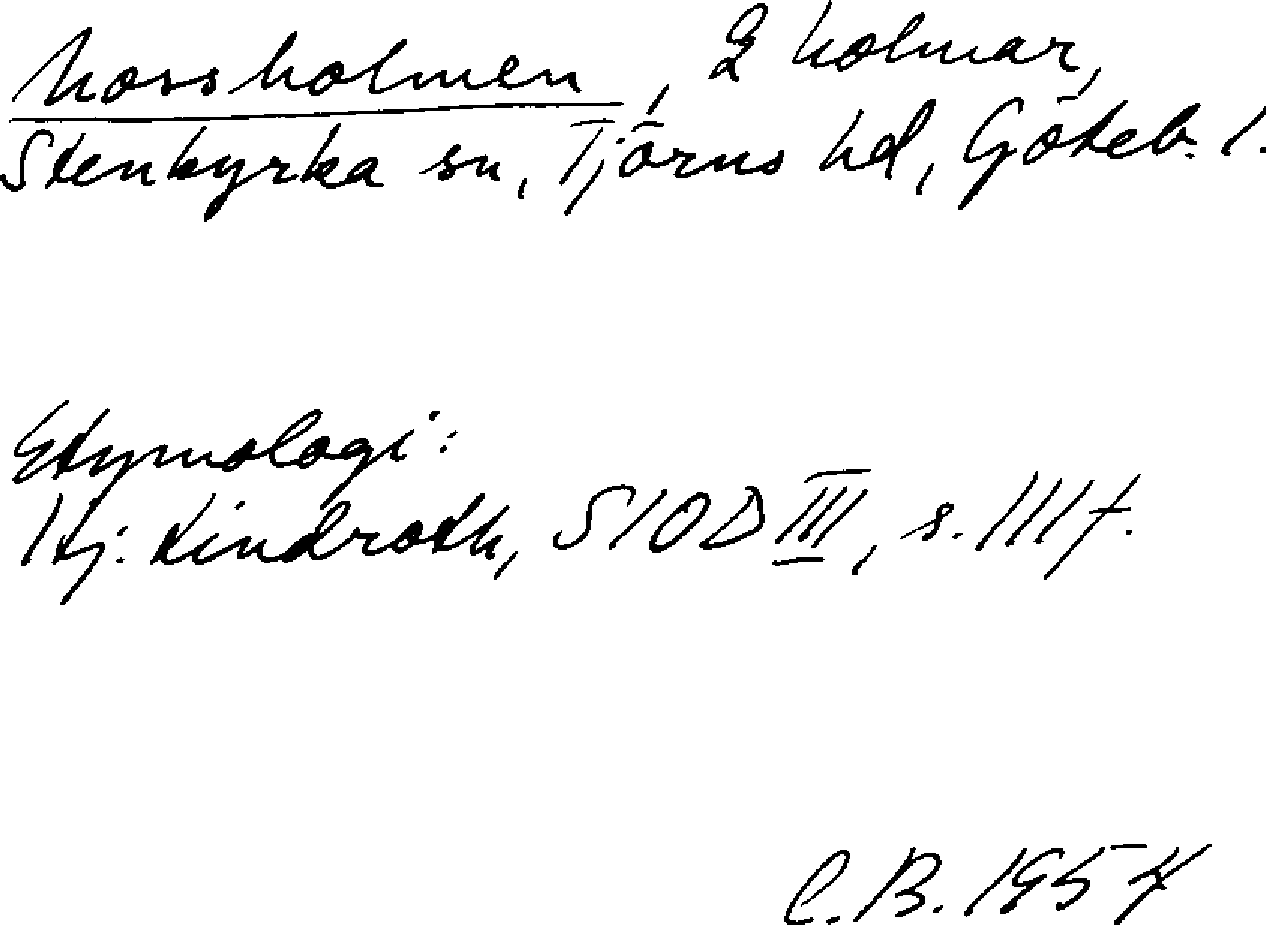 Mossholmen, 2 holmar,
Stenkyrka sn, Tjörns hd, Göteb. l.
Etymologi:
Hj. Lindroth, SIOD III, s. 111 f.
C.B. 1954